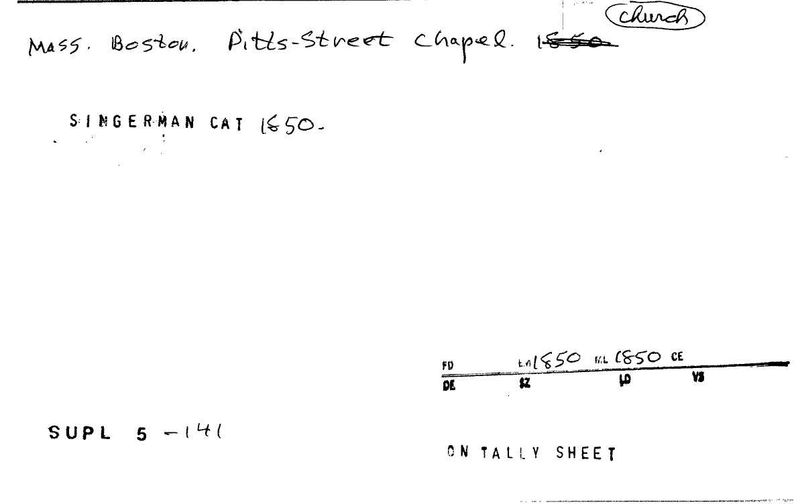 church
Mass. Boston. Pitts-Street Chapel. 1850
SINGERMAN CAT 1850.
FD EA 1850 ML 1850 CE
DE SZ LD VS
SUPL 5 -141
ON TALLY SHEET